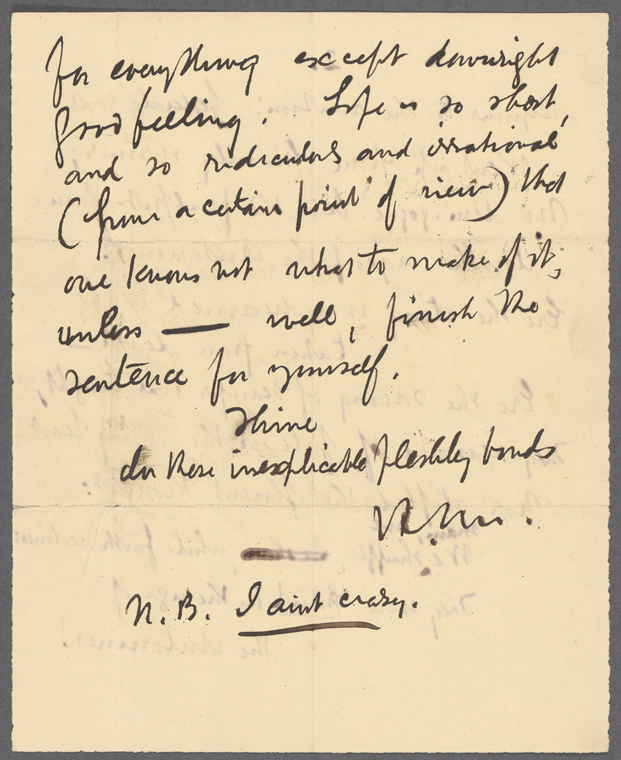 for everything except downright
good feeling. Life is so short,
and so ridiculous and irrational
(from a certain point of view) that
one knows not what to make of it,
unless — well, finish the
sentence for yourself.
Thine
In these inexplicable fleshly bonds
H.M.
N.B. I aint crazy.